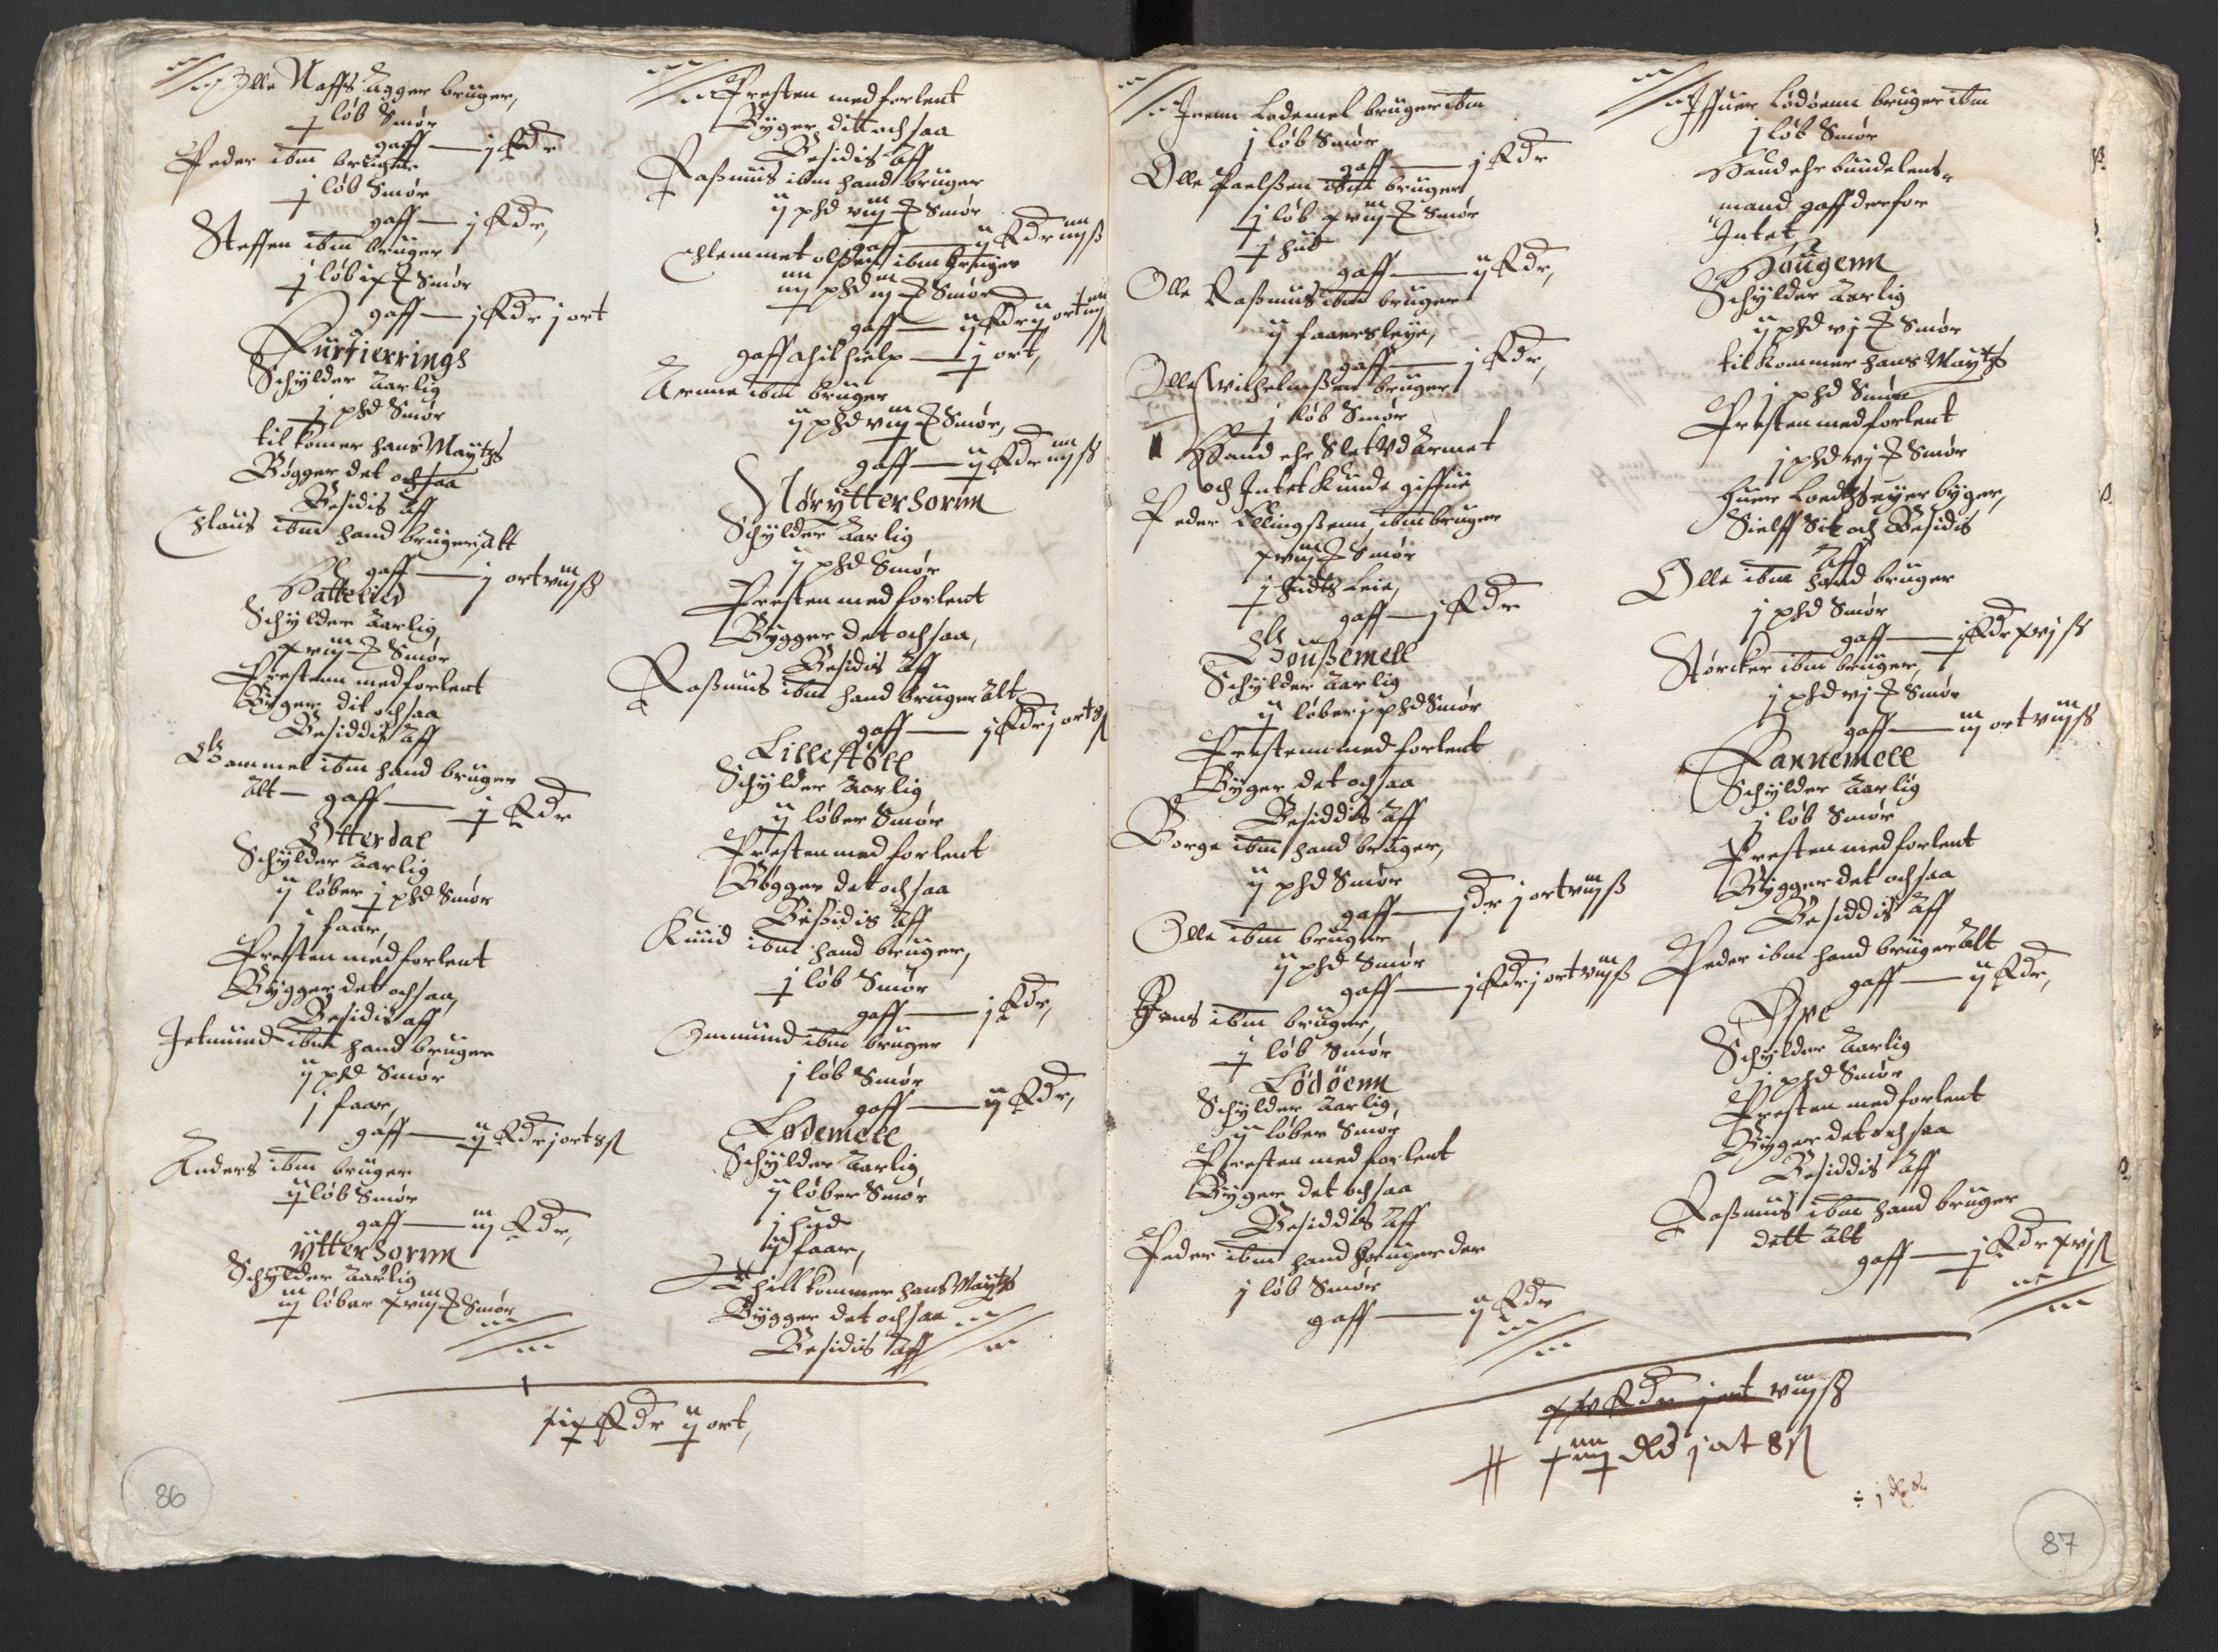 Olle Naffs Agger bruger,
j løb Smør
gaff — j Rdr
Peder ibm bruger
j løb Smør
gaff — j Rdr,
Steffen ibm bruger
j løb ix Smør
gaff — j Rdr j ort
Schylder Aarlig
j phd Smør
til komer hans Maytz
Bøgger det och saa
Besidis Aff
Claus ibm hand bruger Alt
gaff — j ort viij ß
Hattelied
Schylder Aarlig
xviij Smør
Prestenn med forlent
Byger dit och saa
Besiddis Aff
Gammel ibm hand bruger
Alt — gaff — j Rdr
Otterdal
Schylder Aarlig
ij løber j phd Smør
j faar,
Presten med forlent
Bygger det och saa,
Besidis aff
Jetmund ibm hand bruger
ij phd Smør
j faar,
gaff — ij Rdr j ort 8 ß
Anders ibm bruger
ij løb Smør
gaff — iij Rdr,
Ytterhornn
Schylder Aarlig
iij løber xviij Smør
xix Rdr ij ort,
86
Presten med forlent
Byger ditt och saa
Besidis Aff
Rasmus ibm hand bruger
ij phd viij Smør
gaff — ij Rdr iiij ß
Clemmet olssen ibm bruger
iiij phd iij Smør
gaff — ij Rdr ij ort iiij ß
gaff schilhielp — j ort,
Arnne ibm bruger
ij phd viij Smør,
gaff — ij Rdr iiij ß
Nørytterhornn
Schylder Aarlig
ij phd Smør
Presten med forlent
Bygger det och saa,
Besidis Aff
Rasmus ibm hand bruger Alt
gaff — j Rdr j ort 8 ß
Lillestöll
Schylder Aarlig
ij løber Smør
Presten med forlent
Bøgger det och saa
Besidis Aff
Knud ibm hand bruger,
j løb Smør
gaff — j Rdr,
Ommund ibm bruger
j løb Smør
gaff — ij Rdr,
Lødemell
Schylder Aarlig
ij løber Smør
j hud
ij faar,
Thill kommer hans Maytz
Bygger det och saa
Besidis Aff
Jvenn Lødemel bruger ibm
j løb Smør
gaff — j Rdr
Olle Paelssen ibm bruger
j løb xviij Smør
j hud
gaff — ij Rdr,
Olle Rasmus ibm bruger
ij faaersleye,
gaff — j Rdr,
Olle Wilhelmssen bruger
j løb Smør
Hand ehr Slet Vd Armet
och Intet kunde giffue
Peder Ellingssenn ibm bruger
xviij Smør
j hudts Leie,
gaff — j Rdr
Goussemell
Schylder Aarlig
ij løber j phd Smør
Prestenn med forlent
Byger det och saa
Besiddis Aff
Borge ibm hand bruger,
ij phd Smør
gaff — j dr j ort viij ß
Olle ibm bruger
ij phd Smør
gaff — j Rdr j ort viij ß
Hans ibm bruger,
j løb Smør
Lödöenn
Schylder Aarlig,
ij løber Smør
Presten med forlent
Bygger det och saa
Besiddis Aff
Peder ibm hand bruger der
j løb Smør
gaff — ij Rdr
Iffuer Lödöenn bruger ibm
j løb Smør
Hand ehr bunde lens-
mand gaff derfor
Intet
Hougenn
Schylder Aarlig
ij phd vj Smør
til kommer hans Maytz
j phd Smør
Presten med forlent
j phd vj Smør
huer Loedtz eyer byger,
Sielff Sit och Besidis
Aff
Olle ibm hand bruger
j phd Smør
gaff — j Rdr xvj ß
Størcker ibm bruger,
j phd vj Smør
gaff — iij ort viij ß
Rannemell
Schylder Aarlig
j løb Smør
Presten med forlent
Bygger det och saa
Besiddis Aff
Peder ibm hand bruger Alt
gaff — ij Rdr,
Schylder Aarlig
j phd Smør
Presten med forlent
Byger det och saa
Besiddis Aff
Rasmus ibm hand bruger
dett Alt
gaff — j Rdr xvj ß
xv Rdr j ort viij ß
xiiij dlr j ort 8 ß
87